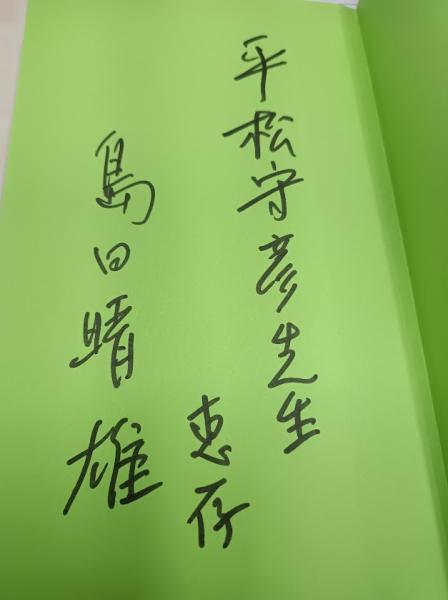 平松守彦先生
惠存
島田晴雄